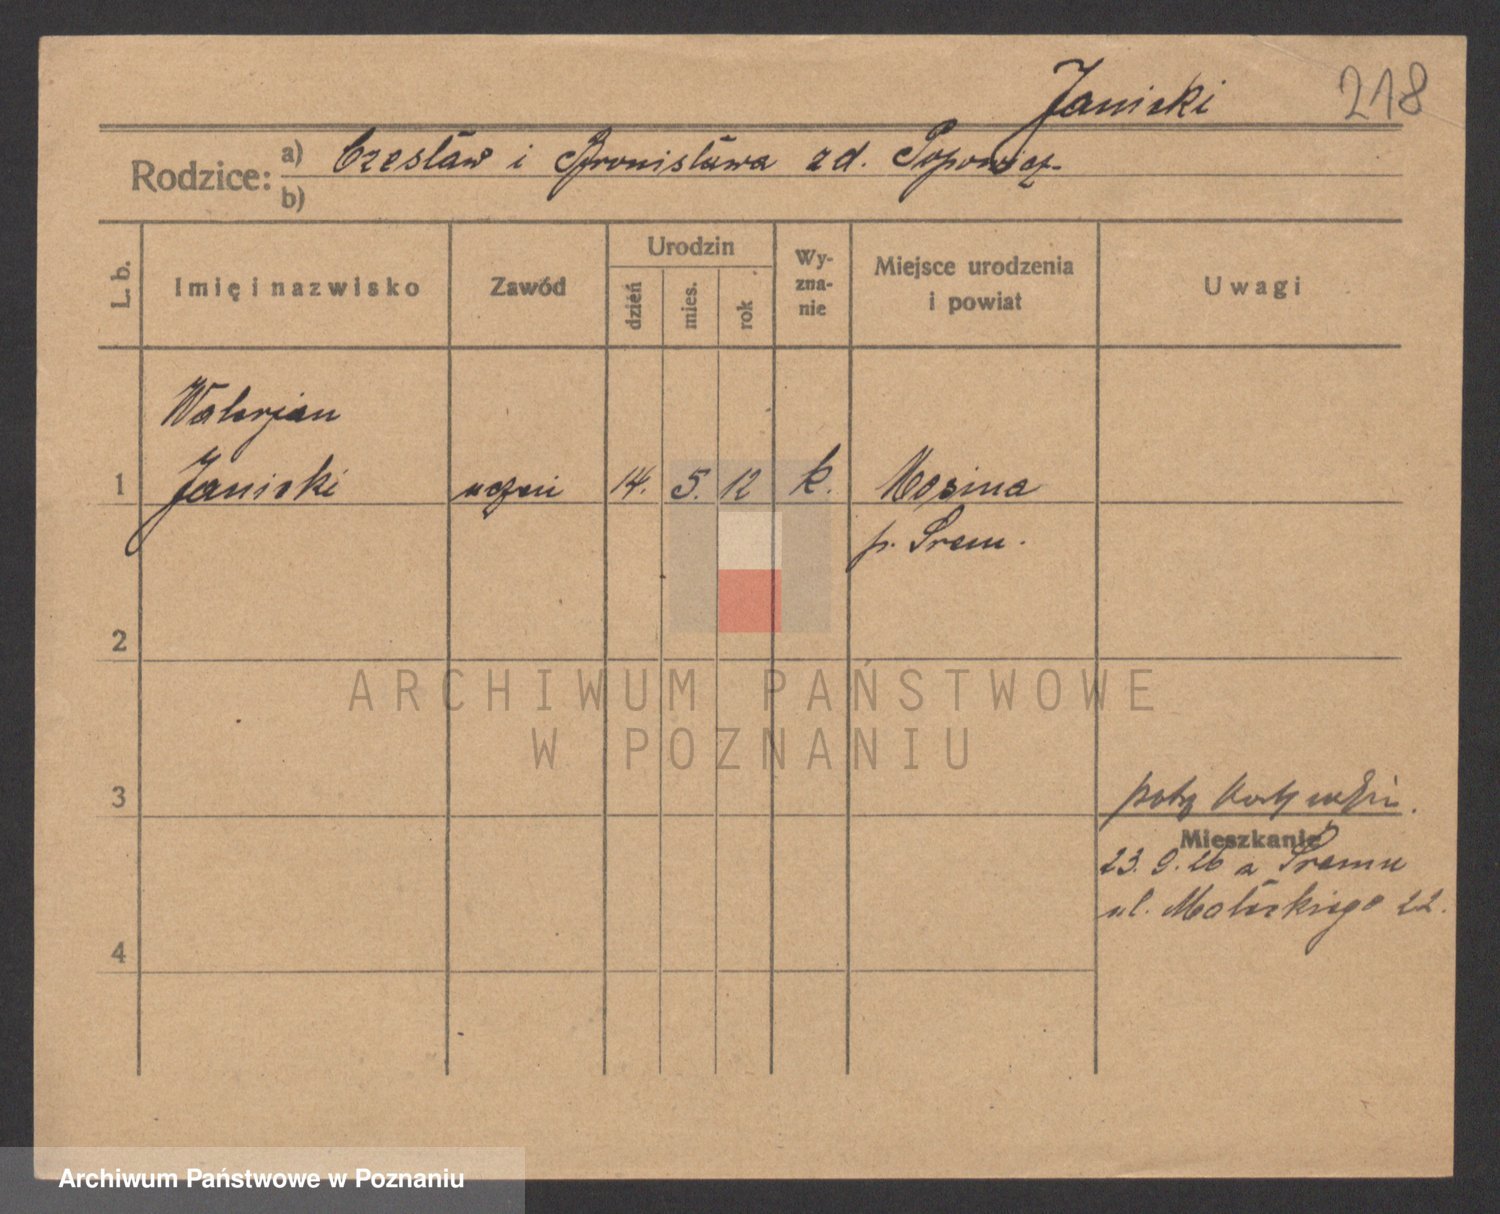 Janicki 218
Rodzice: a) Czesław i Bronisława zd. Popowicz
b)
L. b. Imię i nazwisko Zawód Urodzin dzień mies. rok Wy-zna-nie Miejsce urodzenia i powiat Uwagi
Walerjan
1 Janicki uczeń 14. 5. 12 k. Mosina
p. Śrem.
2
ARCHIWUM PAŃSTWOWE
W POZNANIU
3
Mieszkanie
23. 9. 26 z Śremu
ul. 22.
4
Archiwum Państwowe w Poznaniu